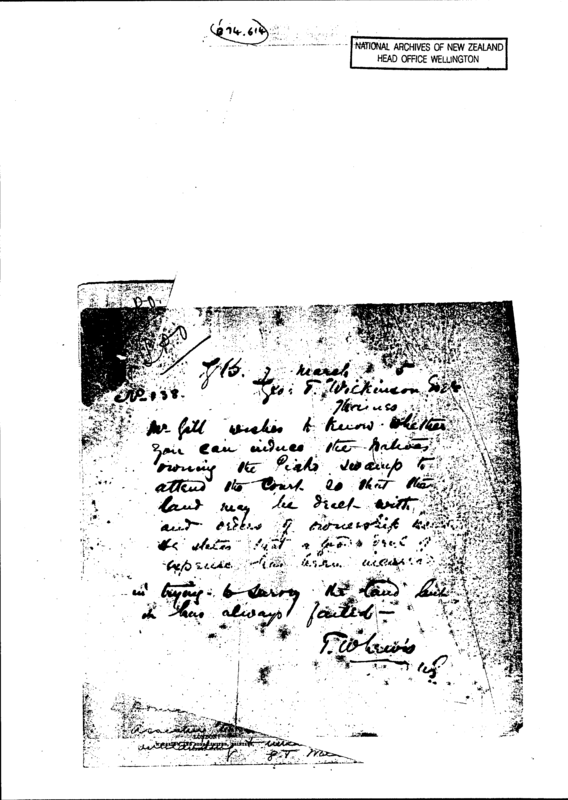 674.614
NATIONAL ARCHIVES OF NEW ZEALAND
HEAD OFFICE WELLINGTON
March 5
Geo: T. Wilkinson Esqre
Thames
Mr Gill wishes to know whether
you can induce the Natives
owning the Piako swamp to
attend the Court so that the
land may be dealt with
and orders of ownership
He states that a good deal of
expense has been incurred
in trying to survey the land but
it has always failed —
T. W. Lewis